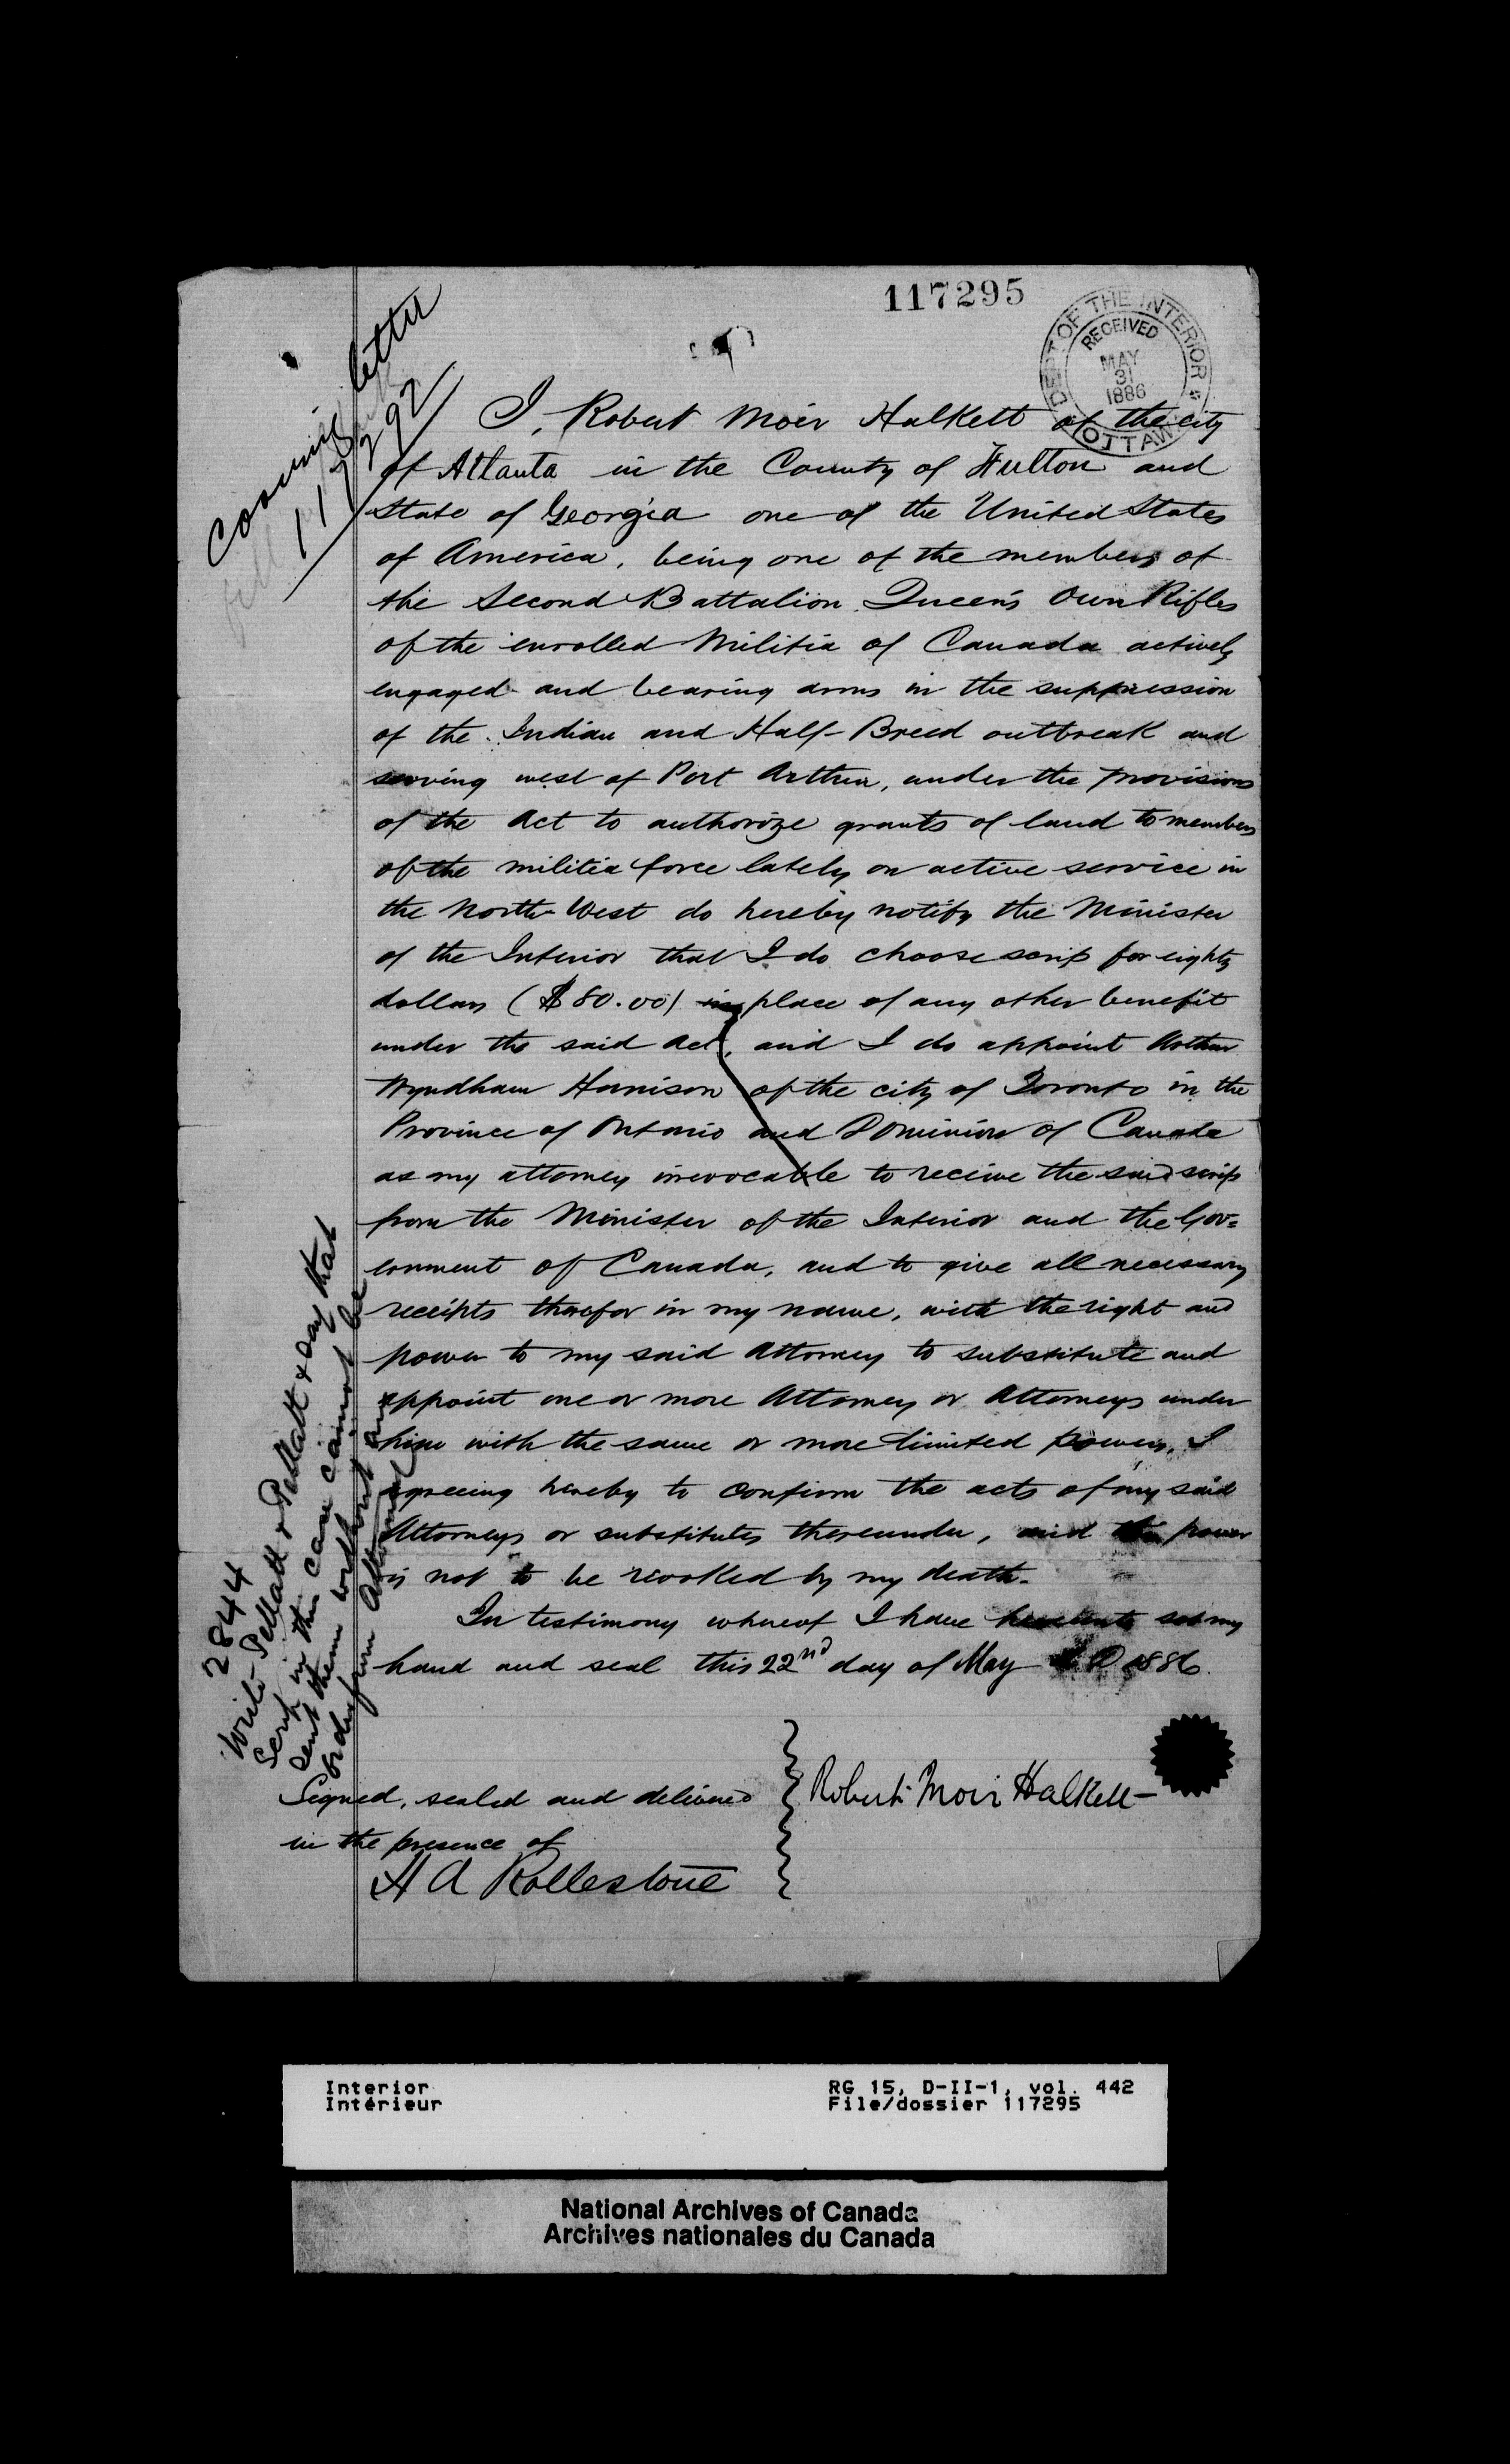 117295
DEPT OF THE INTERIOR
RECEIVED
MAY
31
1886
OTTAWA
Covering letter
117292
I, Robert Moir Halkett of the city
of Atlanta in the County of Fulton and
State of Georgia one of the United States
of America, being one of the members of
the Second Battalion Queen's Own Rifles
of the enrolled Militia of Canada actively
engaged and bearing arms in the suppression
of the Indian and Half-Breed outbreak and
serving west of Port Arthur, under the provisions
of the Act to authorize grants of land to members
of the militia force lately on active service in
the North-West do hereby notify the Minister
of the Interior that I do choose scrip for eighty
dollars ($80.00) in place of any other benefit
under the said Act, and I do appoint Arthur
Wyndham Harrison of the city of Toronto in the
Province of Ontario and Dominion of Canada
as my attorney irrevocable to receive the said scrip
from the Minister of the Interior and the Gov=
ernment of Canada, and to give all necessary
receipts therefor in my name, with the right and
power to my said Attorney to substitute and
appoint one or more Attorney or Attorneys under
him with the same or more limited powers, I
agreeing hereby to confirm the acts of my said
Attorneys or substitutes thereunder, and this power
is not to be revoked by my death.
In testimony whereof I have hereunto set my
hand and seal this 22nd day of May A.D 1886.
2844
Write Pellatt & Pellatt & say that
Scrip in this case cannot be
sent them without an
order from Attorney
Signed, sealed and delivered
in the presence of
H A Rollestone
Robert Moir Halkett
Interior
Intérieur
RG 15, D-II-1, vol. 442
File/dossier 117295
National Archives of Canada
Archives nationales du Canada